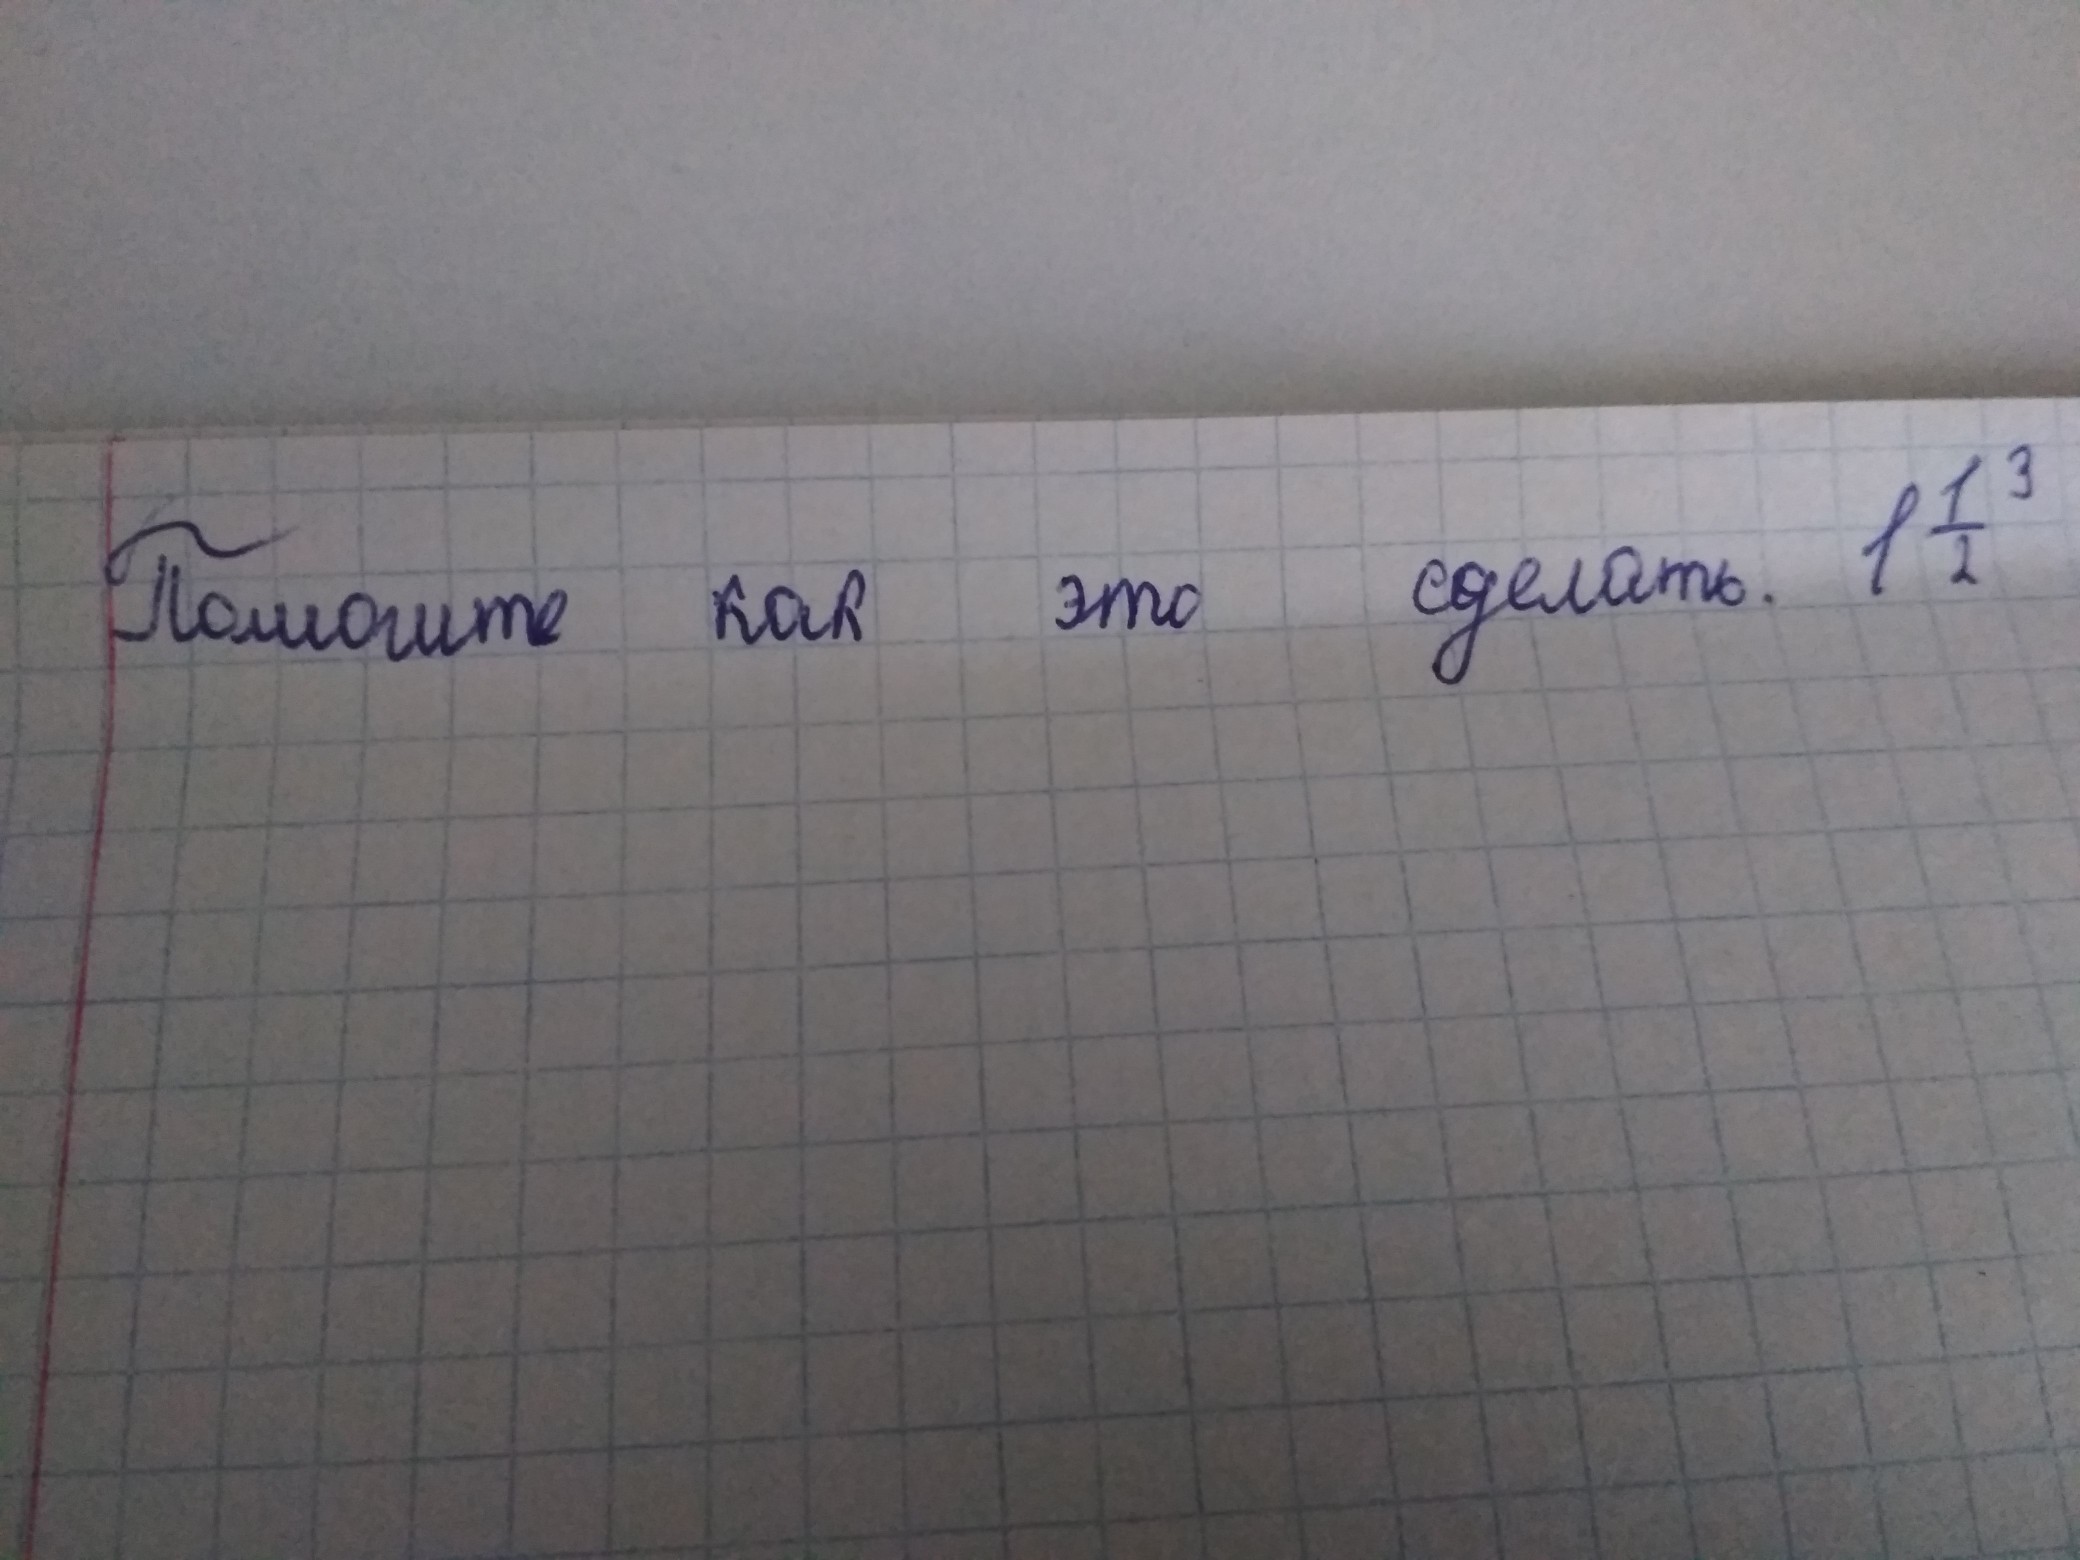 Помогите как это сделать. 1 1/2 ³